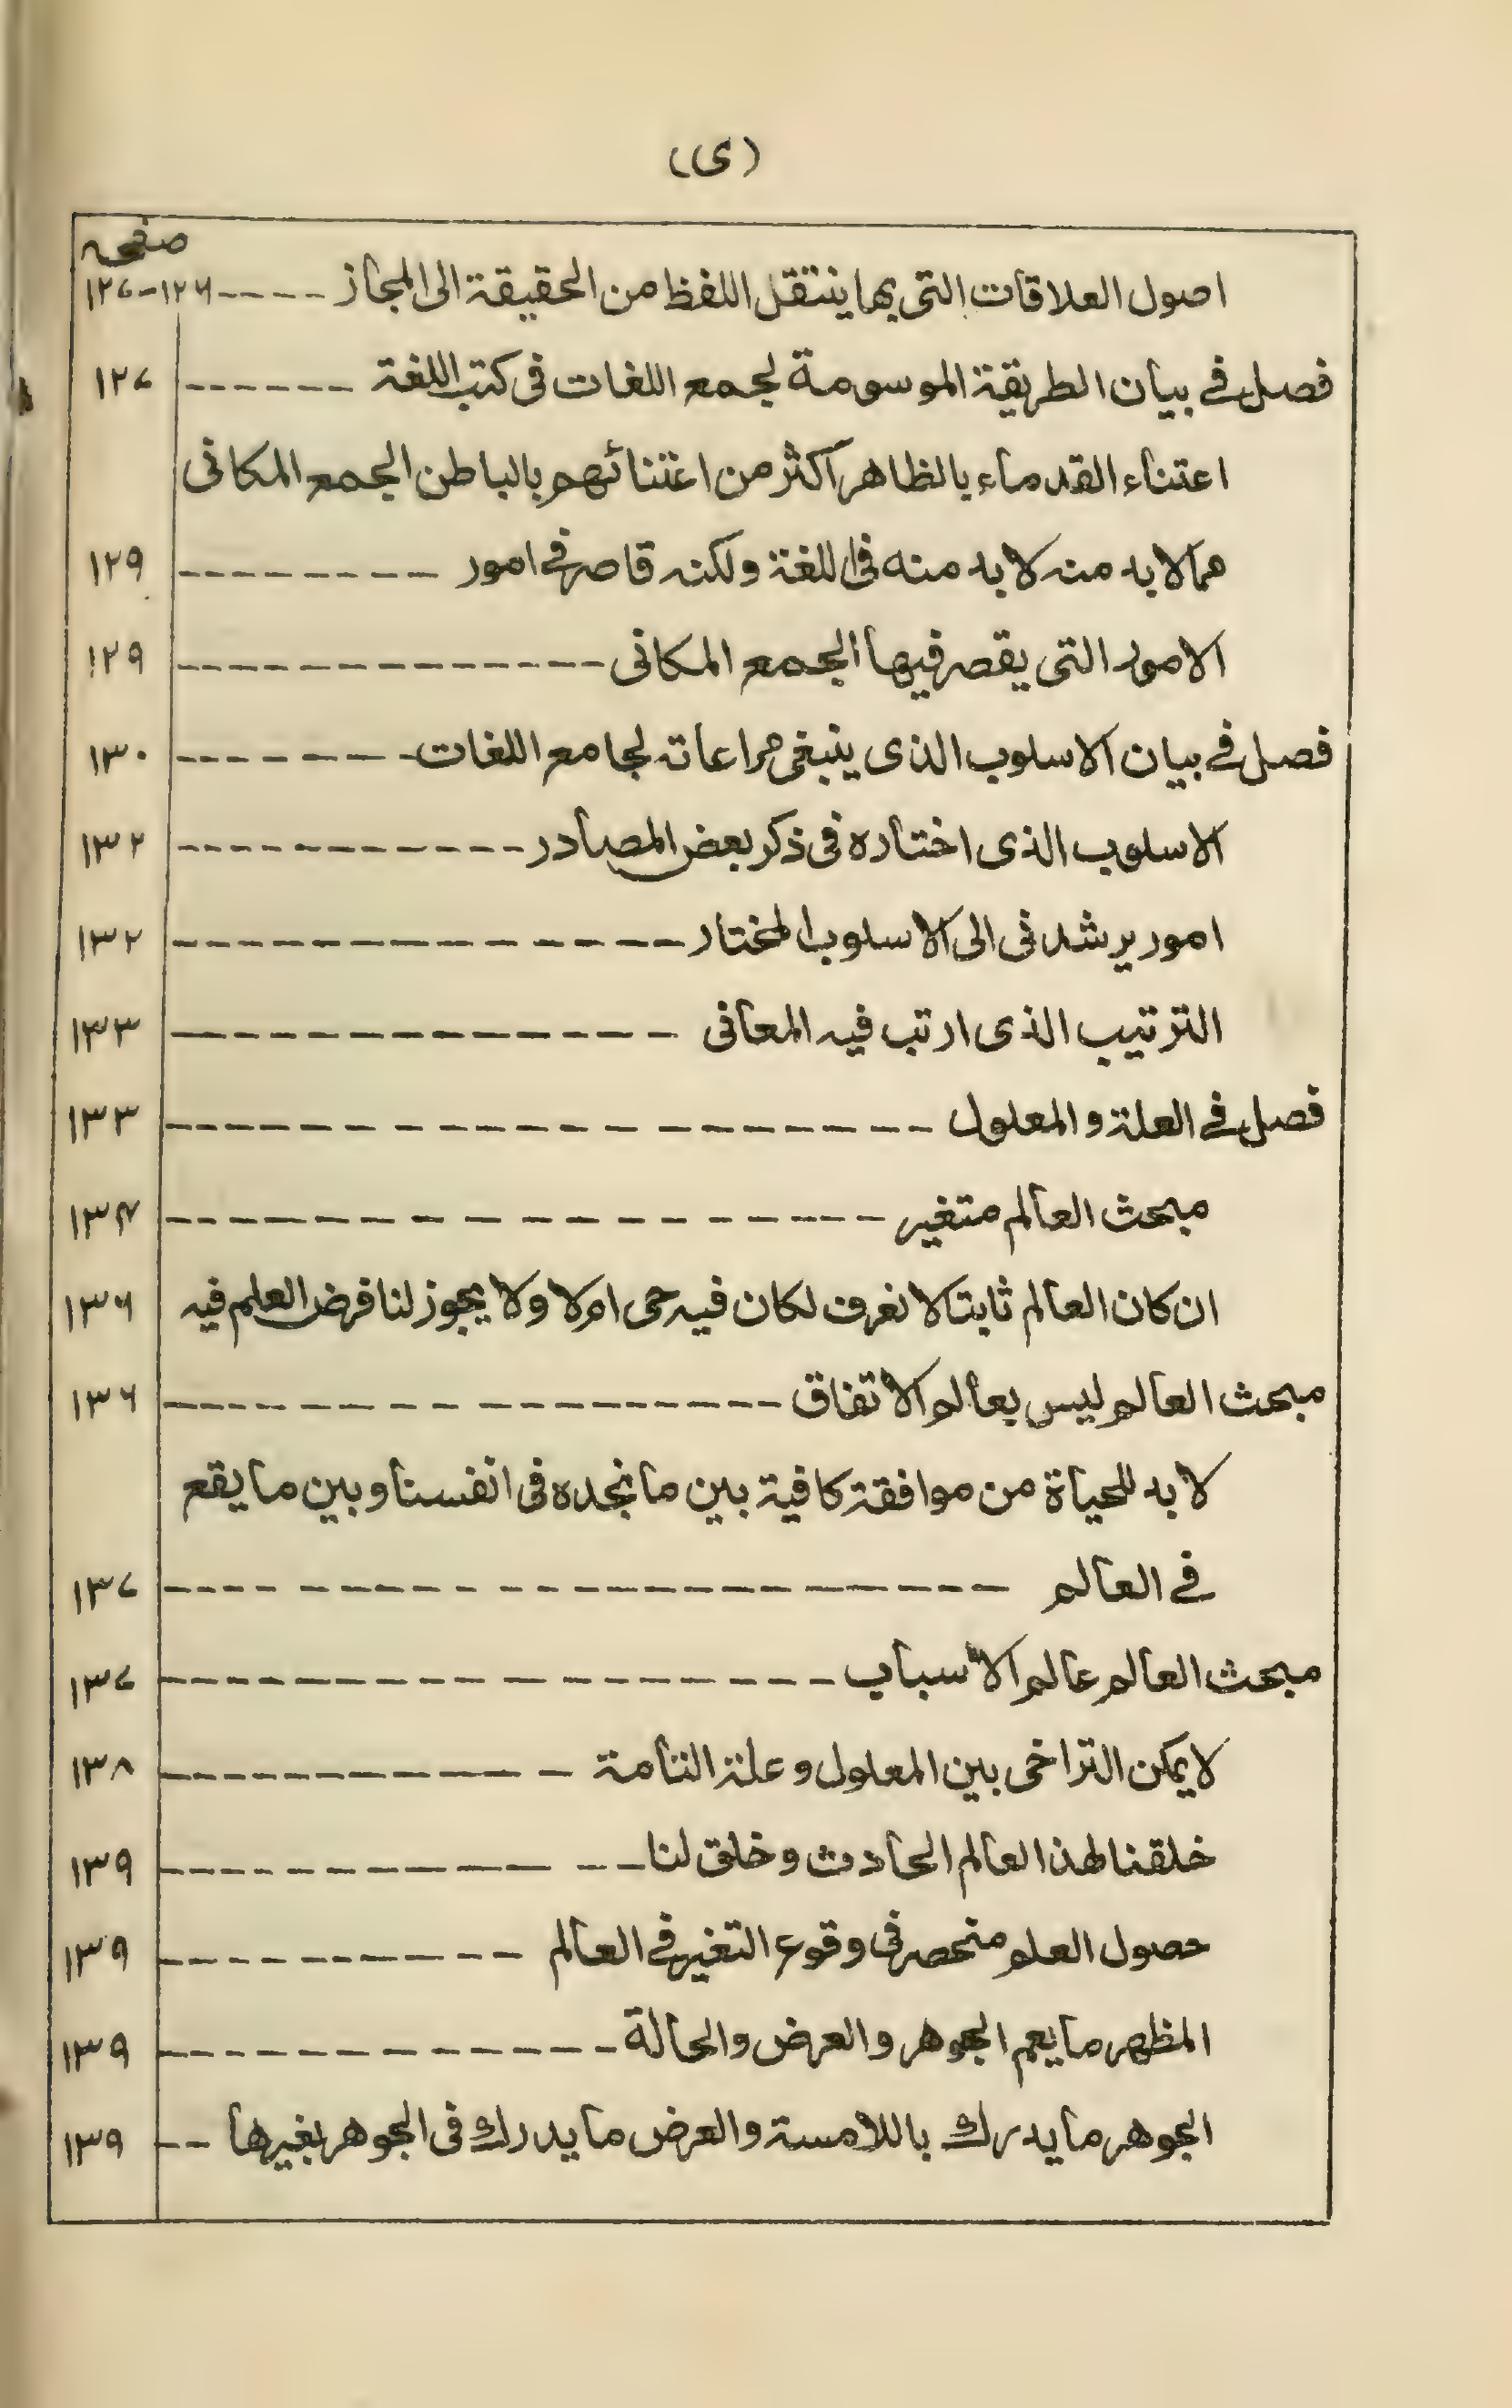 (ی)
صفحہ
اصول العلاقات التی بها ینتقل اللفظ من الحقیقة الی المجاز ----- ۱۲۶-۱۲۷
فصل فی بیان الطریقة الموسومة لجمع اللغات فی کتب اللغة ------ ۱۲۷
اعتناء القدماء بالظاهر اکثر من اعتنائهم بالباطن الجمع المکانی
مما لا بد منه لا بد منه فی اللغة ولکنه قاصر فی امور --------- ۱۲۹
الامور التی یقصر فیها الجمع المکانی --------------- ۱۲۹
فصل فی بیان الاسلوب الذی ینبغی مراعاته لجامع اللغات -------- ۱۳۰
الاسلوب الذی اختاره فی ذکر بعض المصادر ------------ ۱۳۲
امور یرشدنی الی الاسلوب المختار --------------- ۱۳۲
الترتیب الذی ارتب فیه المعانی --------------- ۱۳۳
فصل فی العلة والمعلول -------------------- ۱۳۳
مبحث العالم متغیر ------------------ ۱۳۴
ان کان العالم ثابتا لا نعرف لکان فیه حی ام لا ولا یجوز لنا فرض العلم فیه ۱۳۶
مبحث العالم لیس بعالم الاتفاق ------------------ ۱۳۶
لا بد للحیاة من موافقة کافیة بین ما نجده فی انفسنا وبین ما یقع
فی العالم ---------------------- ۱۳۷
مبحث العالم عالم الاسباب ------------------ ۱۳۷
لا یمکن التراخی بین المعلول وعلته التامة ------------ ۱۳۸
خلقنا لهذا العالم الحادث وخلق لنا -------------- ۱۳۹
حصول العلم منحصر فی وقوع التغیر فی العالم ----------- ۱۳۹
المظهر ما یعم الجوهر والعرض والحالة --------------- ۱۳۹
الجوهر ما یدرك باللامسة والعرض ما یدرك فی الجوهر بغیرها -- ۱۳۹